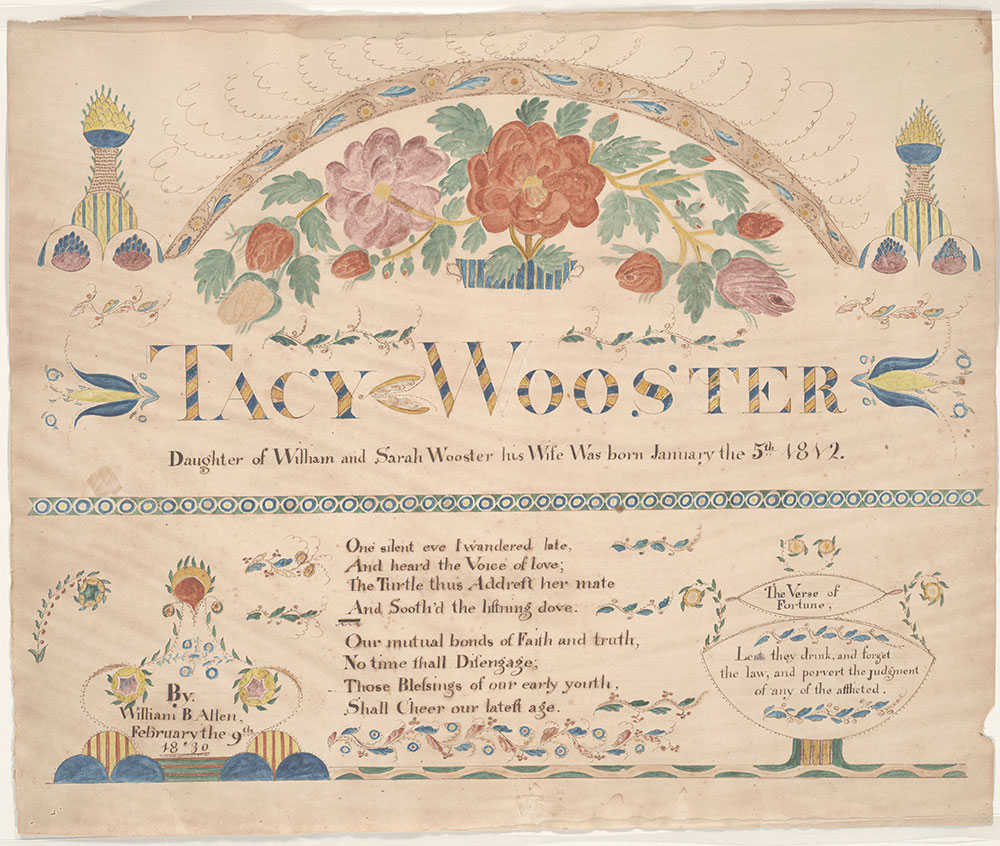 TACY WOOSTER
Daughter of William and Sarah Wooster his Wife Was born January the 5th 1812.
One silent eve I wandered late,
And heard the Voice of love;
The Turtle thus Addreſt her mate
And Sooth'd the liſtning dove.
Our mutual bonds of Faith and truth,
No time ſhall Diſengage;
Thoſe Bleſsings of our early youth,
Shall Cheer our lateſt age.
By
William B Allen,
February the 9th
1830
The Verse of
Fortune,
Lest they drink, and forget
the law, and pervert the judgment
of any of the afflicted.